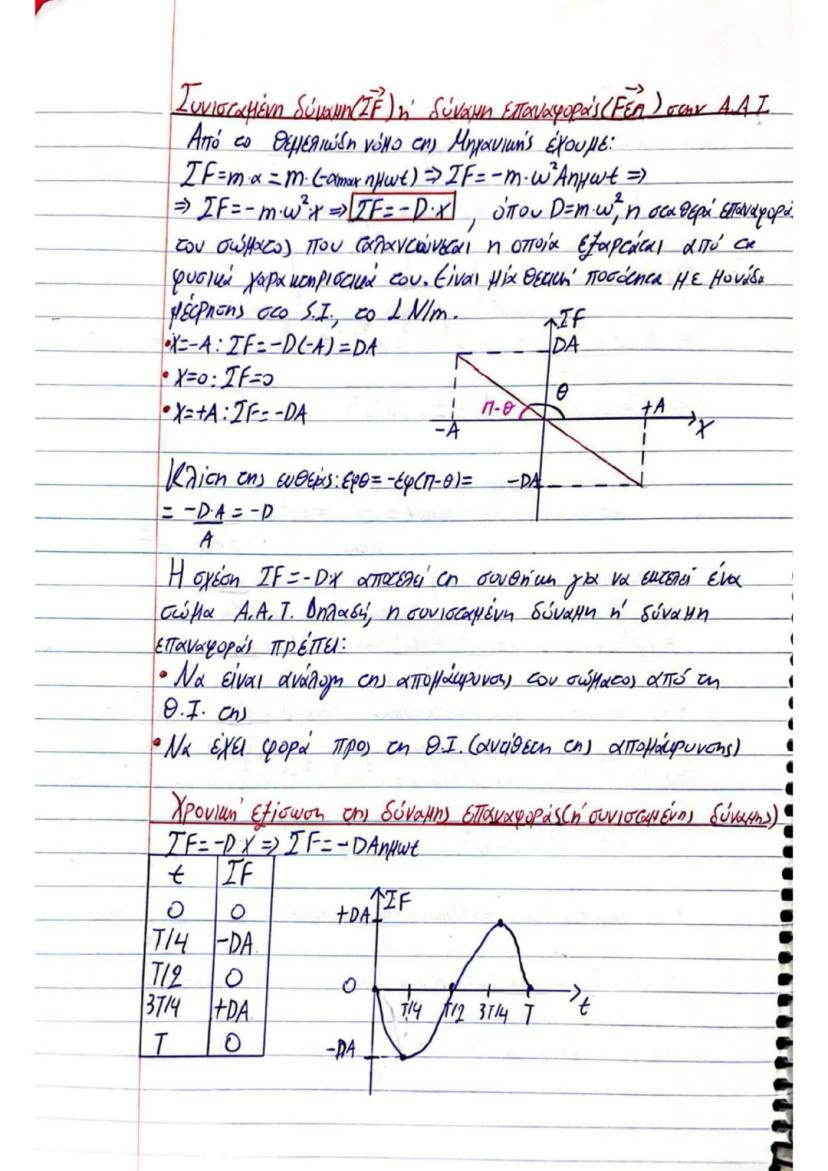 Συνισταμένη δύναμη(ΣF) ή δύναμη επαναφοράς(Fεπ) στην Α.Α.Τ.
Από το θεμελιώδη νόμο της Μηχανικής έχουμε:
ΣF=m·α=m·(-αmax ημωt) ⇒ ΣF=-m·ω²Aημωt ⇒
⇒ ΣF=-m·ω²x ⇒ ΣF=-D·x , όπου D=m·ω², η σταθερά επαναφορά
του σώματος που ταλαντώνεται η οποία εξαρτάται από τα
φυσικά χαρακτηριστικά του. Είναι μία θετική ποσότητα με μονάδα
μέτρησης στο S.I., το 1 N/m.
•x=-A: ΣF=-D(-A)=DA
•x=0: ΣF=0
•x=+A: ΣF=-DA
ΣF
DA
θ
π-θ
-A
+A
x
-DA
Κλίση της ευθείας: εφθ=-εφ(π-θ)=
= -D·A/A = -D
Η σχέση ΣF=-D·x αποτελεί τη συνθήκη για να εκτελεί ένα
σώμα Α.Α.Τ. Δηλαδή, η συνισταμένη δύναμη ή δύναμη
επαναφοράς πρέπει:
• Να είναι ανάλογη της απομάκρυνσης του σώματος από τη
Θ.Ι. της
• Να έχει φορά προς τη Θ.Ι. (αντίθετη της απομάκρυνσης)
Χρονική εξίσωση της δύναμης επαναφοράς(ή συνισταμένης δύναμης)
ΣF=-Dx ⇒ ΣF=-DAημωt
t ΣF
0 0
T/4 -DA
T/2 0
3T/4 +DA
T 0
ΣF
+DA
0
T/4 T/2 3T/4 T t
-DA